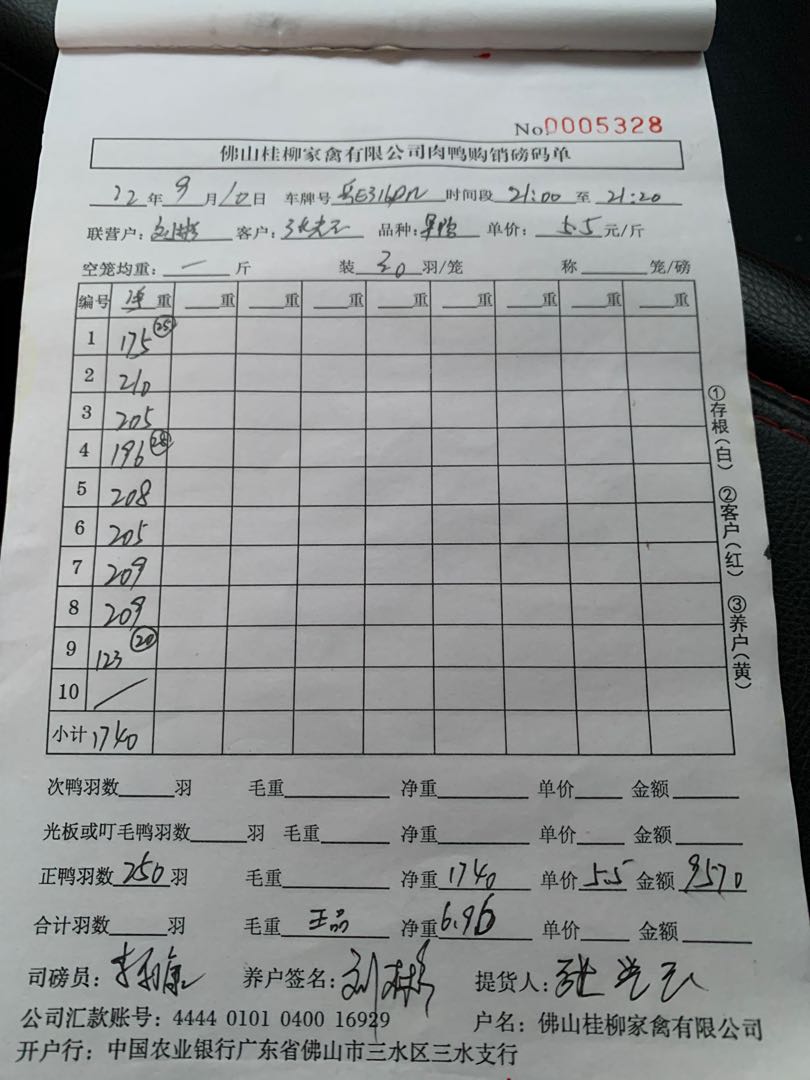 No.0005328
佛山桂柳家禽有限公司肉鸭购销磅码单
22年9月10日 车牌号 时间段 21:00 至 21:20
联营户: 客户: 张光云 品种: 单价: 5.5 元/斤
空笼均重: 一 斤 装 30 羽/笼 称 笼/磅
编号 净重 重 重 重 重 重 重 重
1 175 (25)
2 210
3 205
4 196 (28)
5 208
6 205
7 209
8 209
9 123 (20)
10 /
小计 1740
①存根(白) ②客户(红) ③养户(黄)
次鸭羽数 羽 毛重 净重 单价 金额
光板或叮毛鸭羽数 羽 毛重 净重 单价 金额
正鸭羽数 250 羽 毛重 净重 1740 单价 5.5 金额 9570
合计羽数 羽 毛重 王品 净重 6.96 单价 金额
司磅员: 养户签名: 提货人: 张光云
公司汇款账号: 4444 0101 0400 16929 户名: 佛山桂柳家禽有限公司
开户行: 中国农业银行广东省佛山市三水区三水支行